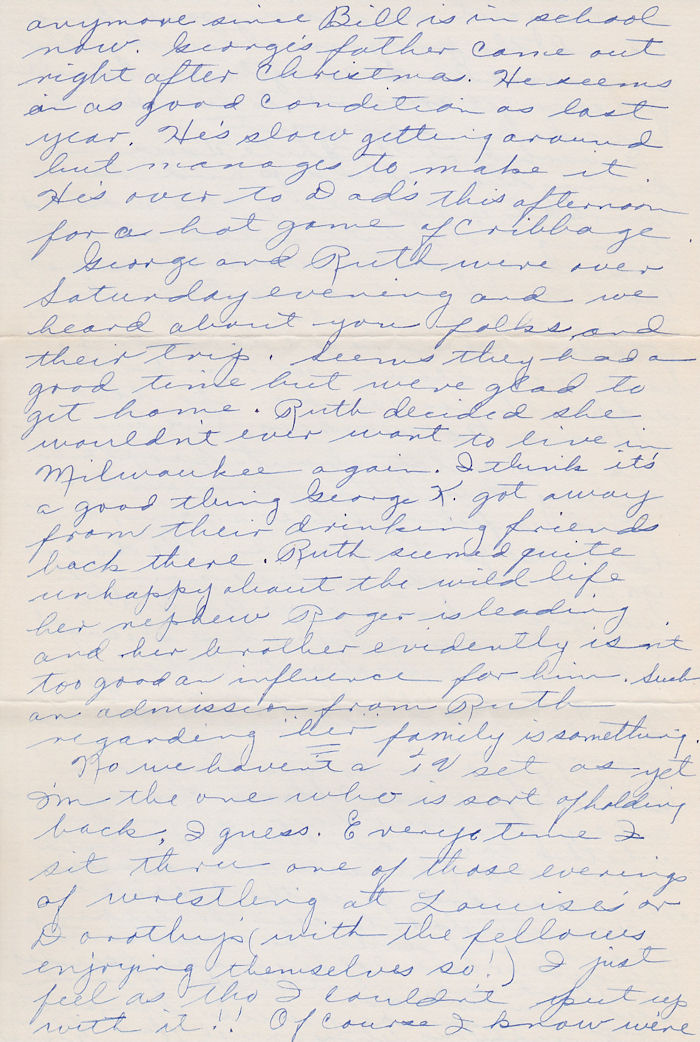 anymore since Bill is in school
now. George's father came out
right after Christmas. He seems
in as good condition as last
year. He's slow getting around
but manages to make it.
He's over to Dad's this afternoon
for a hot game of cribbage.
George and Ruth were over
Saturday evening and we
heard about you folks and
their trip. Seems they had a
good time but were glad to
get home. Ruth decided she
wouldn't ever want to live in
Milwaukee again. I think it's
a good thing George K. got away
from their drinking friends
back there. Ruth seemed quite
unhappy about the wild life
her nephew Roger is leading
and her brother evidently isn't
too good an influence for him. Such
an admission from Ruth
regarding "her" family is something.
No we haven't a TV set as yet
I'm the one who is sort of holding
back, I guess. Everyo time I
sit thru one of those evenings
of wrestling at Louise's or
Dorothy's (with the fellows
enjoying themselves so!) I just
feel as tho I couldn't put up
with it!! Of course I know we're